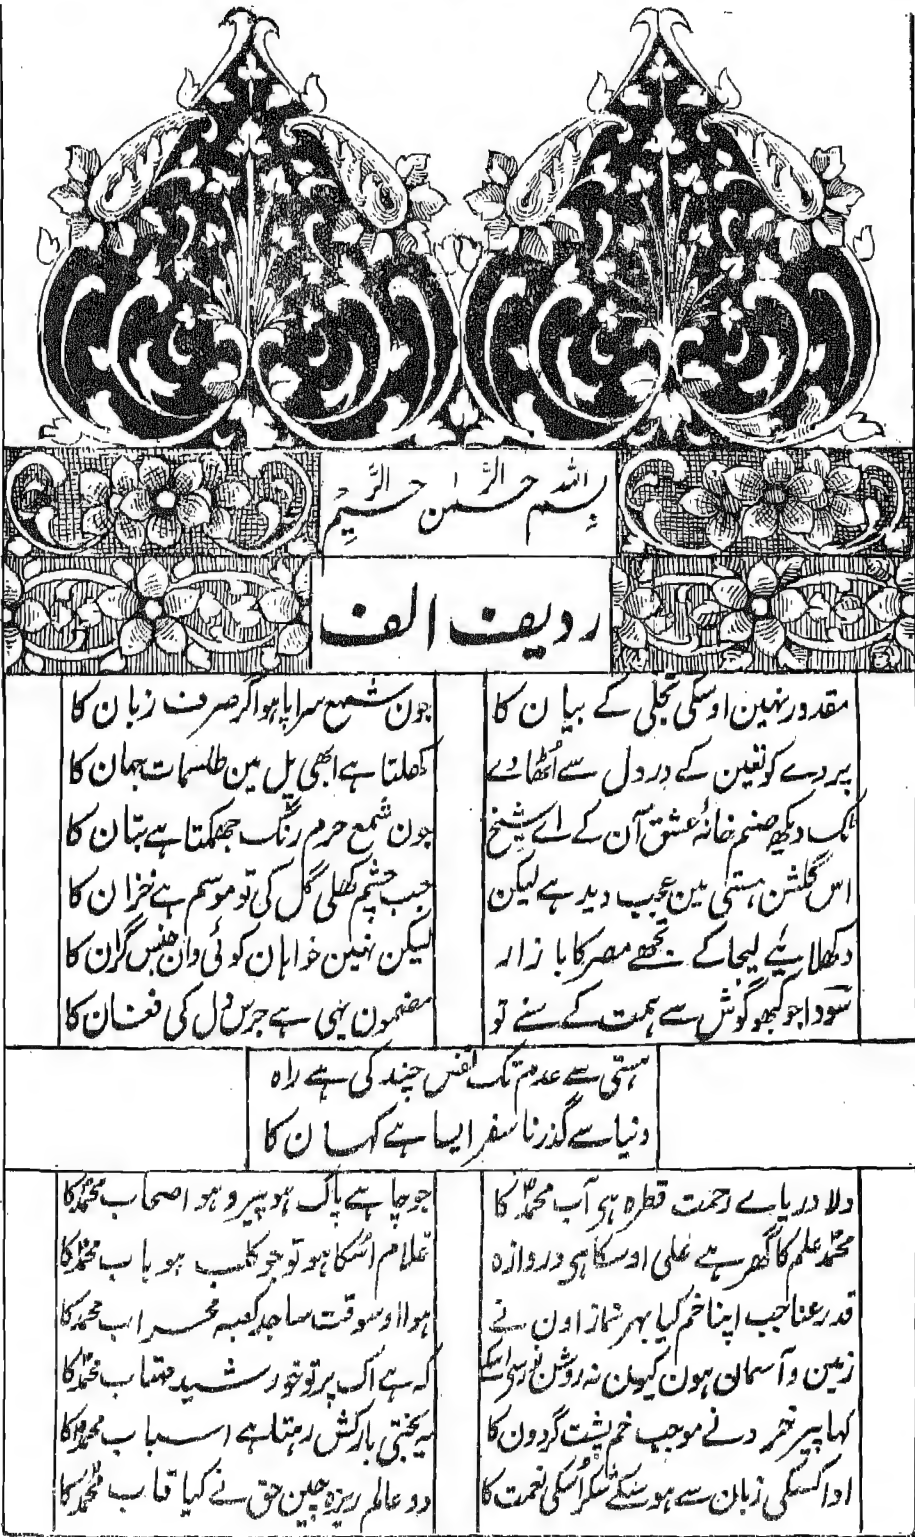 بِسْمِ اللهِ الرَّحْمٰنِ الرَّحِيْمِ
ردیف الف
مقدور نہین اوسکی تجلی کے بیان کا جون شمع سراپا ہو اگر صرف زبان کا
پردے کو تعین کے در دل سے اُٹھا دے کھلتا ہے ابھی پل مین طلسمات جہان کا
ٹک دیکھ صنم خانۂ عشق آن کے اے شیخ جون شمع حرم رنگ جھمکتا ہے بتان کا
اس گلشن ہستی مین عجب دید ہے لیکن جب چشم کھلی گل کی تو موسم ہے خزان کا
دکھلائیے لیجا کے تجھے مصر کا بازار لیکن نہین خواہان کوئی وان جنس گران کا
سودا جو کبھو گوش سے ہمت کے سنے تو مضمون یہی ہے جرس دل کی فغان کا
ہستی سے عدم تک نفس چند کی ہے راہ
دنیا سے گذرنا سفر ایسا ہے کہان کا
دلا دریاے رحمت قطرہ ہی آب محمدؐ کا جو چاہے پاک ہو پیرو ہو اصحاب محمدؐ کا
محمدؐ علم کا گھر ہے علی اوسکا ہی دروازہ غلام اسکا ہو تو جو کلب ہو باب محمدؐ کا
قد رعنا جب اپنا خم کیا بہر نماز اون نے ہوا اوسوقت ساجد کعبہ محراب محمدؐ کا
زمین و آسمان ہون کیون نہ روشن نور سی اسکے کہ ہے اک پرتو خورشید مہتاب محمدؐ کا
کہا پیر خرد نے موجب خم پشت گردون کا یہ بختی بارکش رہتا ہے اسباب محمدؐ کا
ادا کسکی زبان سے ہو سکے شکر اُسکی نعمت کا دو عالم ریزہ چین حق نے کیا قاب محمدؐ کا